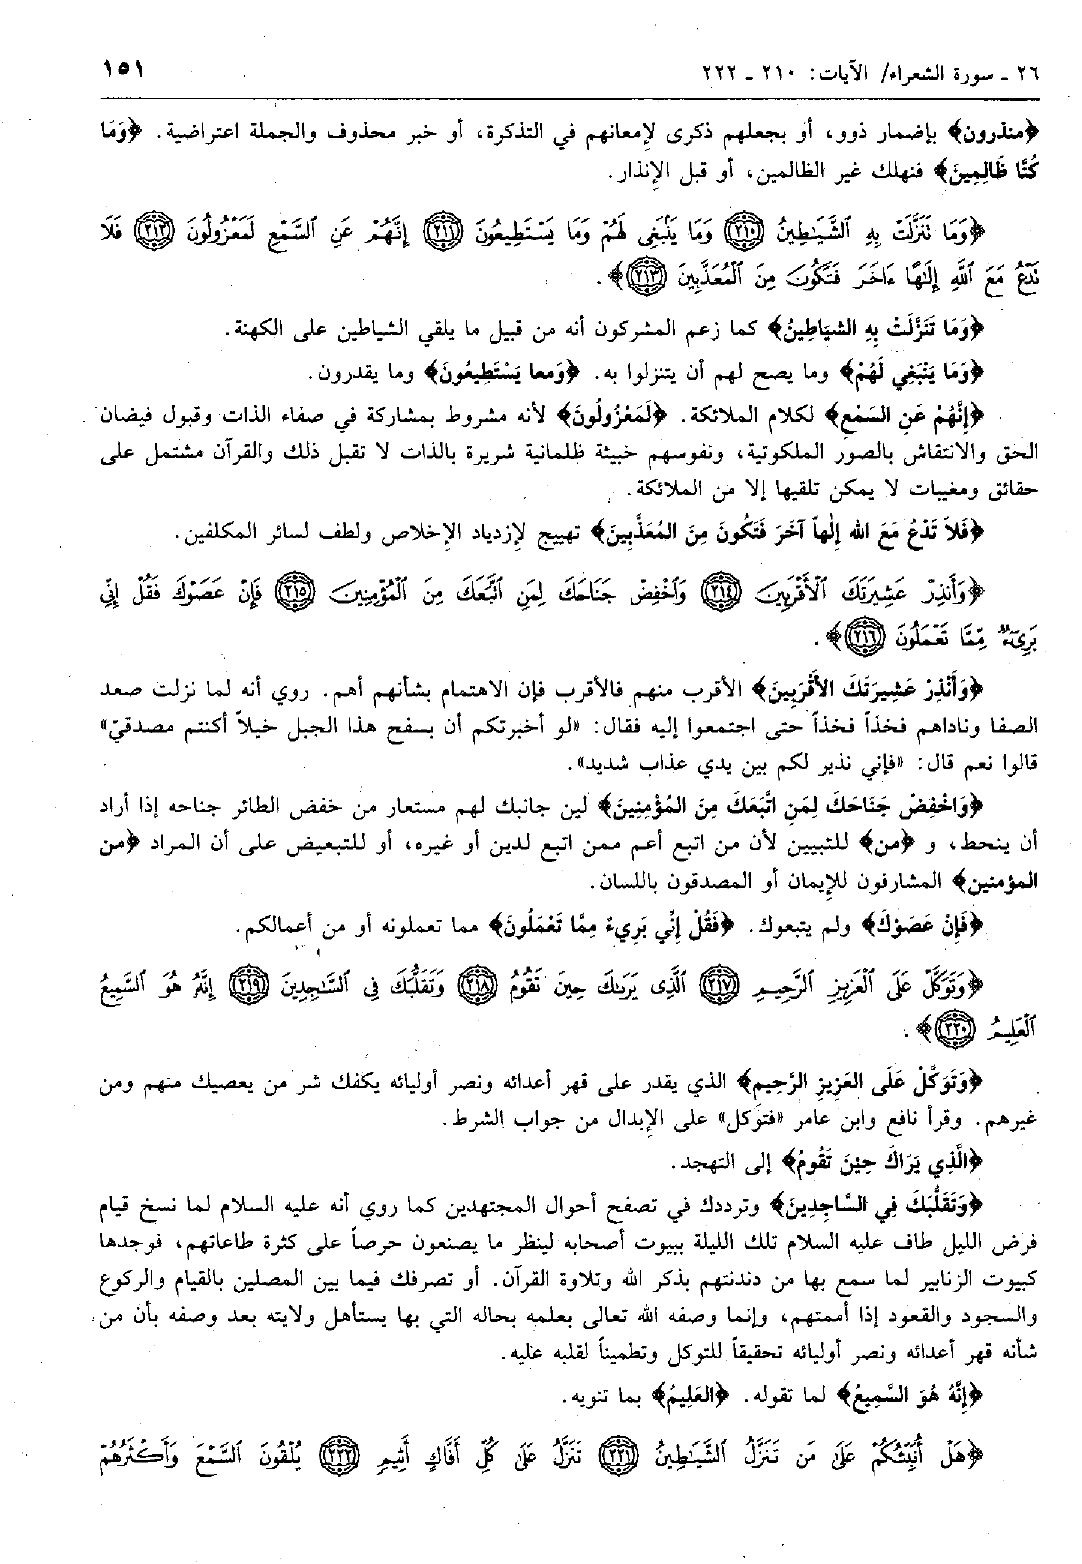 ٢٦ ـ سورة الشعراء/ الآيات: ٢١٠ ـ ٢٢٢ ١٥١
﴿منذرون﴾ بإضمار ذوو، أو بجعلهم ذكرى لإمعانهم في التذكرة، أو خبر محذوف والجملة اعتراضية. ﴿وَمَا
كُنَّا ظَالِمِينَ﴾ فنهلك غير الظالمين، أو قبل الإنذار.
﴿وَمَا نَنَزَّلَتْ بِهِ ٱلشَّيَٰطِينُ ﴿٢١٠﴾ وَمَا يَنۢبَغِى لَهُمْ وَمَا يَسْتَطِيعُونَ ﴿٢١١﴾ إِنَّهُمْ عَنِ ٱلسَّمْعِ لَمَعْزُولُونَ ﴿٢١٢﴾ فَلَا
نَدْعُ مَعَ ٱللَّهِ إِلَٰهًا ءَاخَرَ فَتَكُونَ مِنَ ٱلْمُعَذَّبِينَ ﴿٢١٣﴾﴾.
﴿وَمَا تَنَزَّلَتْ بِهِ الشيَاطِينُ﴾ كما زعم المشركون أنه من قبيل ما يلقي الشياطين على الكهنة.
﴿وَمَا يَنْبَغِي لَهُمْ﴾ وما يصح لهم أن يتنزلوا به. ﴿وَمعا يَسْتَطِيعُونَ﴾ وما يقدرون.
﴿إِنَّهُمْ عَنِ السَمْعِ﴾ لكلام الملائكة. ﴿لَمَعْزُولُونَ﴾ لأنه مشروط بمشاركة في صفاء الذات وقبول فيضان
الحق والانتقاش بالصور الملكوتية، ونفوسهم خبيثة ظلمانية شريرة بالذات لا تقبل ذلك والقرآن مشتمل على
حقائق ومغيبات لا يمكن تلقيها إلا من الملائكة.
﴿فَلاَ تَدْعُ مَعَ الله إِلٰهاً آخَرَ فَتَكُونَ مِنَ المُعَذَّبِينَ﴾ تهييج لإزدياد الإخلاص ولطف لسائر المكلفين.
﴿وَأَنذِرْ عَشِيرَتَكَ ٱلْأَقْرَبِينَ ﴿٢١٤﴾ وَٱخْفِضْ جَنَاحَكَ لِمَنِ ٱتَّبَعَكَ مِنَ ٱلْمُؤْمِنِينَ ﴿٢١٥﴾ فَإِنْ عَصَوْكَ فَقُلْ إِنِّى
بَرِىٓءٌ مِّمَّا تَعْمَلُونَ ﴿٢١٦﴾﴾.
﴿وَأَنْذِرْ عَشِيرَتَكَ الأَقْرَبِينَ﴾ الأقرب منهم فالأقرب فإن الاهتمام بشأنهم أهم. روي أنه لما نزلت صعد
الصفا وناداهم فخذاً فخذاً حتى اجتمعوا إليه فقال: «لو أخبرتكم أن بسفح هذا الجبل خيلاً أكنتم مصدقيّ»
قالوا نعم قال: «فإني نذير لكم بين يدي عذاب شديد».
﴿وَاخْفِضْ جَنَاحَكَ لِمَنِ اتَّبَعَكَ مِنَ المُؤْمِنِينَ﴾ لين جانبك لهم مستعار من خفض الطائر جناحه إذا أراد
أن ينحط، و ﴿من﴾ للتبيين لأن من اتبع أعم ممن اتبع لدين أو غيره، أو للتبعيض على أن المراد ﴿من
المؤمنين﴾ المشارفون للإيمان أو المصدقون باللسان.
﴿فَإِنْ عَصَوْكَ﴾ ولم يتبعوك. ﴿فَقُلْ إِنِّي بَرِيءٌ مِمَّا تَعْمَلُونَ﴾ مما تعملونه أو من أعمالكم.
﴿وَتَوَكَّلْ عَلَى ٱلْعَزِيزِ ٱلرَّحِيمِ ﴿٢١٧﴾ ٱلَّذِى يَرَىٰكَ حِينَ تَقُومُ ﴿٢١٨﴾ وَتَقَلُّبَكَ فِى ٱلسَّٰجِدِينَ ﴿٢١٩﴾ إِنَّهُ هُوَ ٱلسَّمِيعُ
ٱلْعَلِيمُ ﴿٢٢٠﴾﴾.
﴿وَتَوَكَّلْ عَلَى العَزِيزِ الرَّحِيمِ﴾ الذي يقدر على قهر أعدائه ونصر أوليائه يكفك شر من يعصيك منهم ومن
غيرهم. وقرأ نافع وابن عامر «فتوكل» على الإبدال من جواب الشرط.
﴿الَّذِي يَرَاكَ حِيْنَ تَقُومُ﴾ إلى التهجد.
﴿وَتَقَلُّبَكَ فِي السَّاجِدِينَ﴾ وترددك في تصفح أحوال المجتهدين كما روي أنه عليه السلام لما نسخ قيام
فرض الليل طاف عليه السلام تلك الليلة ببيوت أصحابه لينظر ما يصنعون حرصاً على كثرة طاعاتهم، فوجدها
كبيوت الزنابير لما سمع بها من دندنتهم بذكر الله وتلاوة القرآن. أو تصرفك فيما بين المصلين بالقيام والركوع
والسجود والقعود إذا أممتهم، وإنما وصفه الله تعالى بعلمه بحاله التي بها يستأهل ولايته بعد وصفه بأن من
شأنه قهر أعدائه ونصر أوليائه تحقيقاً للتوكل وتطميناً لقلبه عليه.
﴿إِنَّهُ هُوَ السَّمِيعُ﴾ لما تقوله. ﴿العَلِيمُ﴾ بما تنويه.
﴿هَلْ أُنَبِّئُكُمْ عَلَىٰ مَن تَنَزَّلُ ٱلشَّيَٰطِينُ ﴿٢٢١﴾ تَنَزَّلُ عَلَىٰ كُلِّ أَفَّاكٍ أَثِيمٍ ﴿٢٢٢﴾ يُلْقُونَ ٱلسَّمْعَ وَأَكْثَرُهُمْ